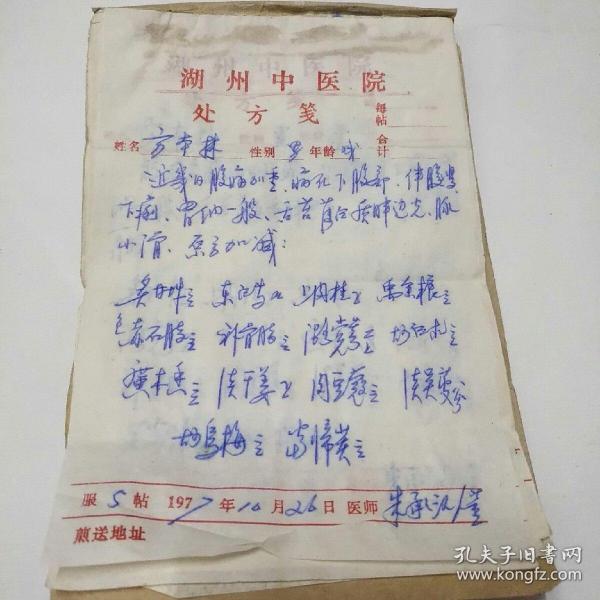 湖州中医院
处方笺
每帖
合计
姓名 方 林 性别 男 年龄 成
近几日腹痛加重，病在下腹部，伴腹
下痢，胃纳一般，舌苔薄白质胖边尖，脉
小滑，原方加减：
上肉桂 禹余粮
赤石脂 补骨脂 潞党参 炒白术
广木香 淡干姜 肉豆蔻 淡吴萸
炒乌梅
服 5 帖 1977年10月26日 医师 朱承汉
煎送地址
孔夫子旧书网
www.kongfz.com